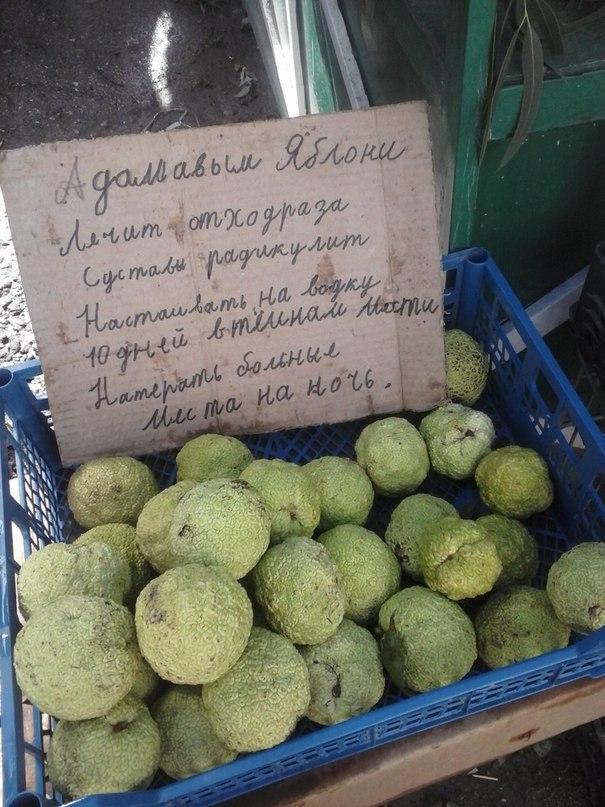 Адамавым Яблони
Лячит отходраза
Суставы радикулит
Настаивать на водку
10 дней в тёмнам мести
Натерать больные
Места на ночь.